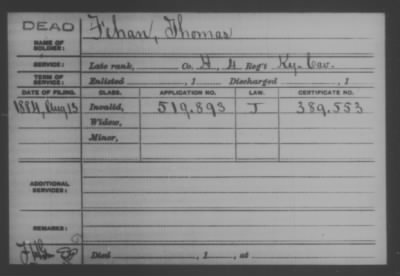 DEAD
NAME OF SOLDIER: Fehan, Thomas
SERVICE: Late rank, Co. H, 4 Reg't Ky. Cav.
TERM OF SERVICE: Enlisted , 1 Discharged , 1
DATE OF FILING. CLASS. APPLICATION NO. LAW. CERTIFICATE NO.
1884, Aug 13 Invalid, 519.893 J 389.553
Widow,
Minor,
ADDITIONAL SERVICES:
REMARKS:
Died , 1 , at